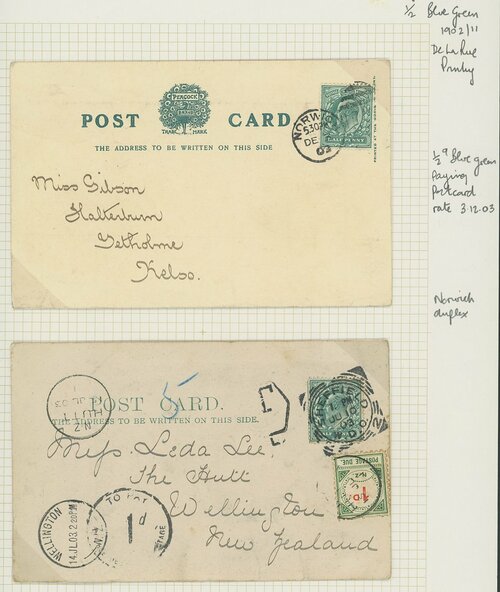 ½ Blue Green
1902/11
De La Rue
Printing
POST CARD
PEACOCK
BRAND
TRADE MARK
THE ADDRESS TO BE WRITTEN ON THIS SIDE
NORWICH
530P
DE
03
HALF PENNY
Miss Gibson
Halterburn
Yetholme
Kelso.
½d Blue green
paying
postcard
rate 3.12.03
Norwich
duplex
POST CARD.
THE ADDRESS TO BE WRITTEN ON THIS SIDE.
5
HUTT
N.Z
JL 03
T
7. PM
JU 10
03
POSTAGE DUE
N.Z.
½D.
Miss Leda Lee
The Hutt
Wellington
New Zealand
WELLINGTON
14 JL 03 2-20PM
TO PAY
1d